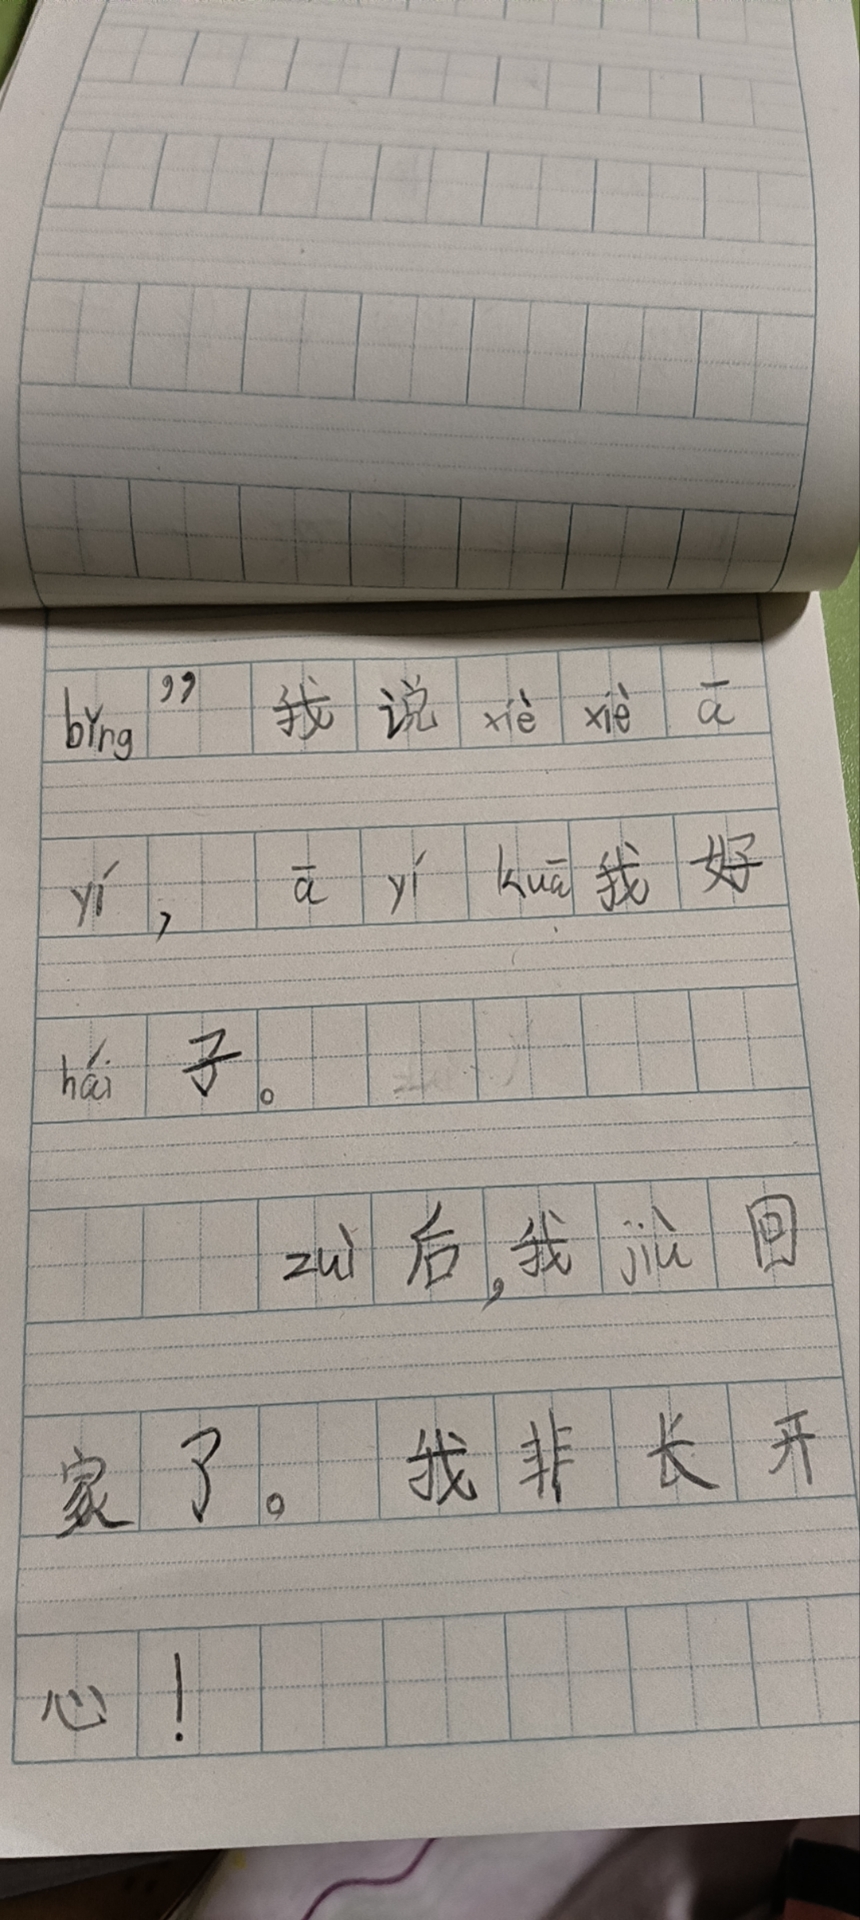 bǐng” 我说xiè xiè ā
yí，ā yí kuā 我好
hái 子。
zuì 后，我 jiù 回
家了。我非长开
心！